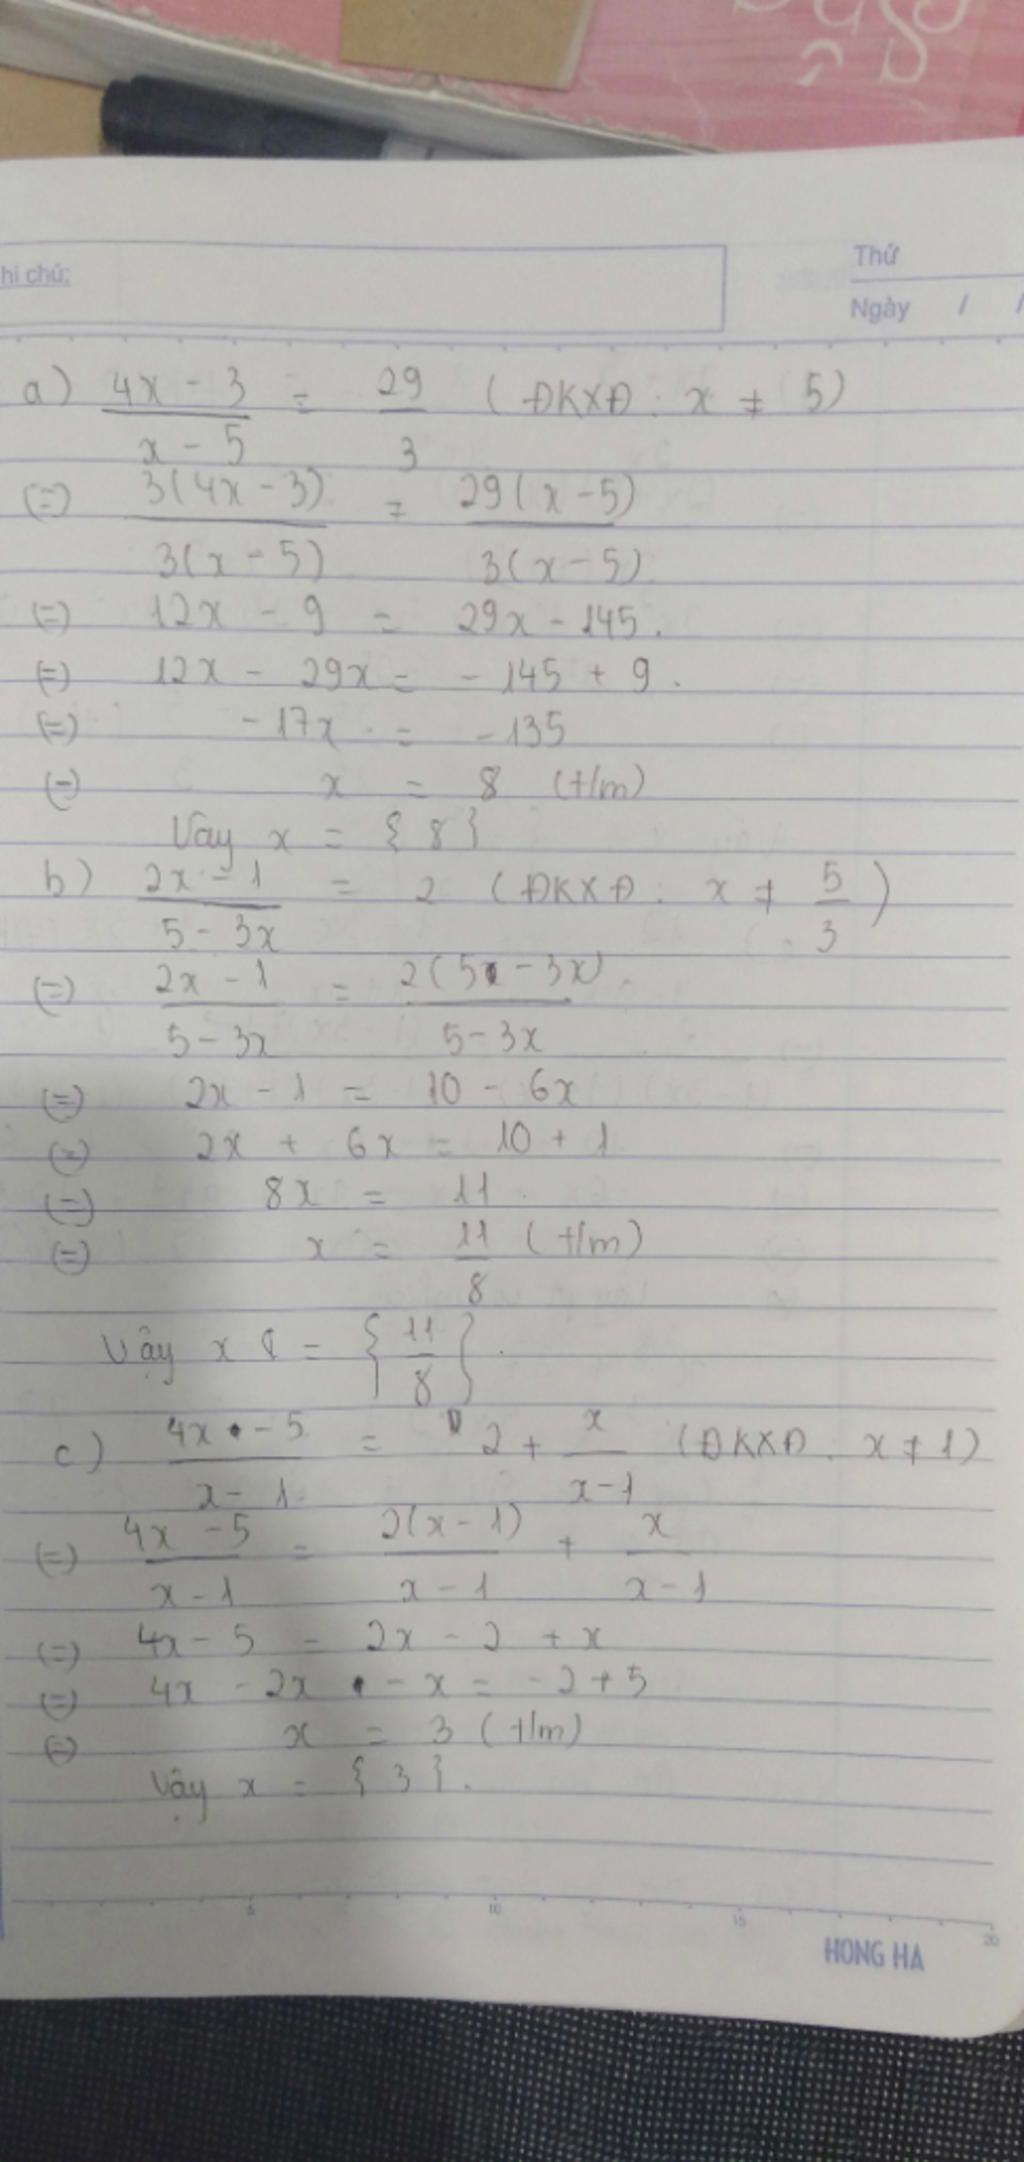 hi chú:
Thứ
Ngày / /
a) (4x - 3)/(x - 5) = 29/3 (ĐKXĐ: x ≠ 5)
(=) 3(4x - 3)/3(x - 5) = 29(x - 5)/3(x - 5)
(=) 12x - 9 = 29x - 145.
(=) 12x - 29x = - 145 + 9.
(=) -17x = -135
(=) x = 8 (t/m)
Vậy x = { 8 }
b) (2x - 1)/(5 - 3x) = 2 (ĐKXĐ: x ≠ 5/3)
(=) (2x - 1)/(5 - 3x) = 2(5 - 3x)/(5 - 3x)
(=) 2x - 1 = 10 - 6x
(=) 2x + 6x = 10 + 1
(=) 8x = 11
(=) x = 11/8 (t/m)
Vậy x = {11/8}.
c) (4x - 5)/(x - 1) = 2 + x/(x - 1) (ĐKXĐ: x ≠ 1)
(=) (4x - 5)/(x - 1) = 2(x - 1)/(x - 1) + x/(x - 1)
(=) 4x - 5 = 2x - 2 + x
(=) 4x - 2x - x = -2 + 5
(=) x = 3 (t/m)
Vậy x = { 3 }.
5 10 15 20
HONG HA